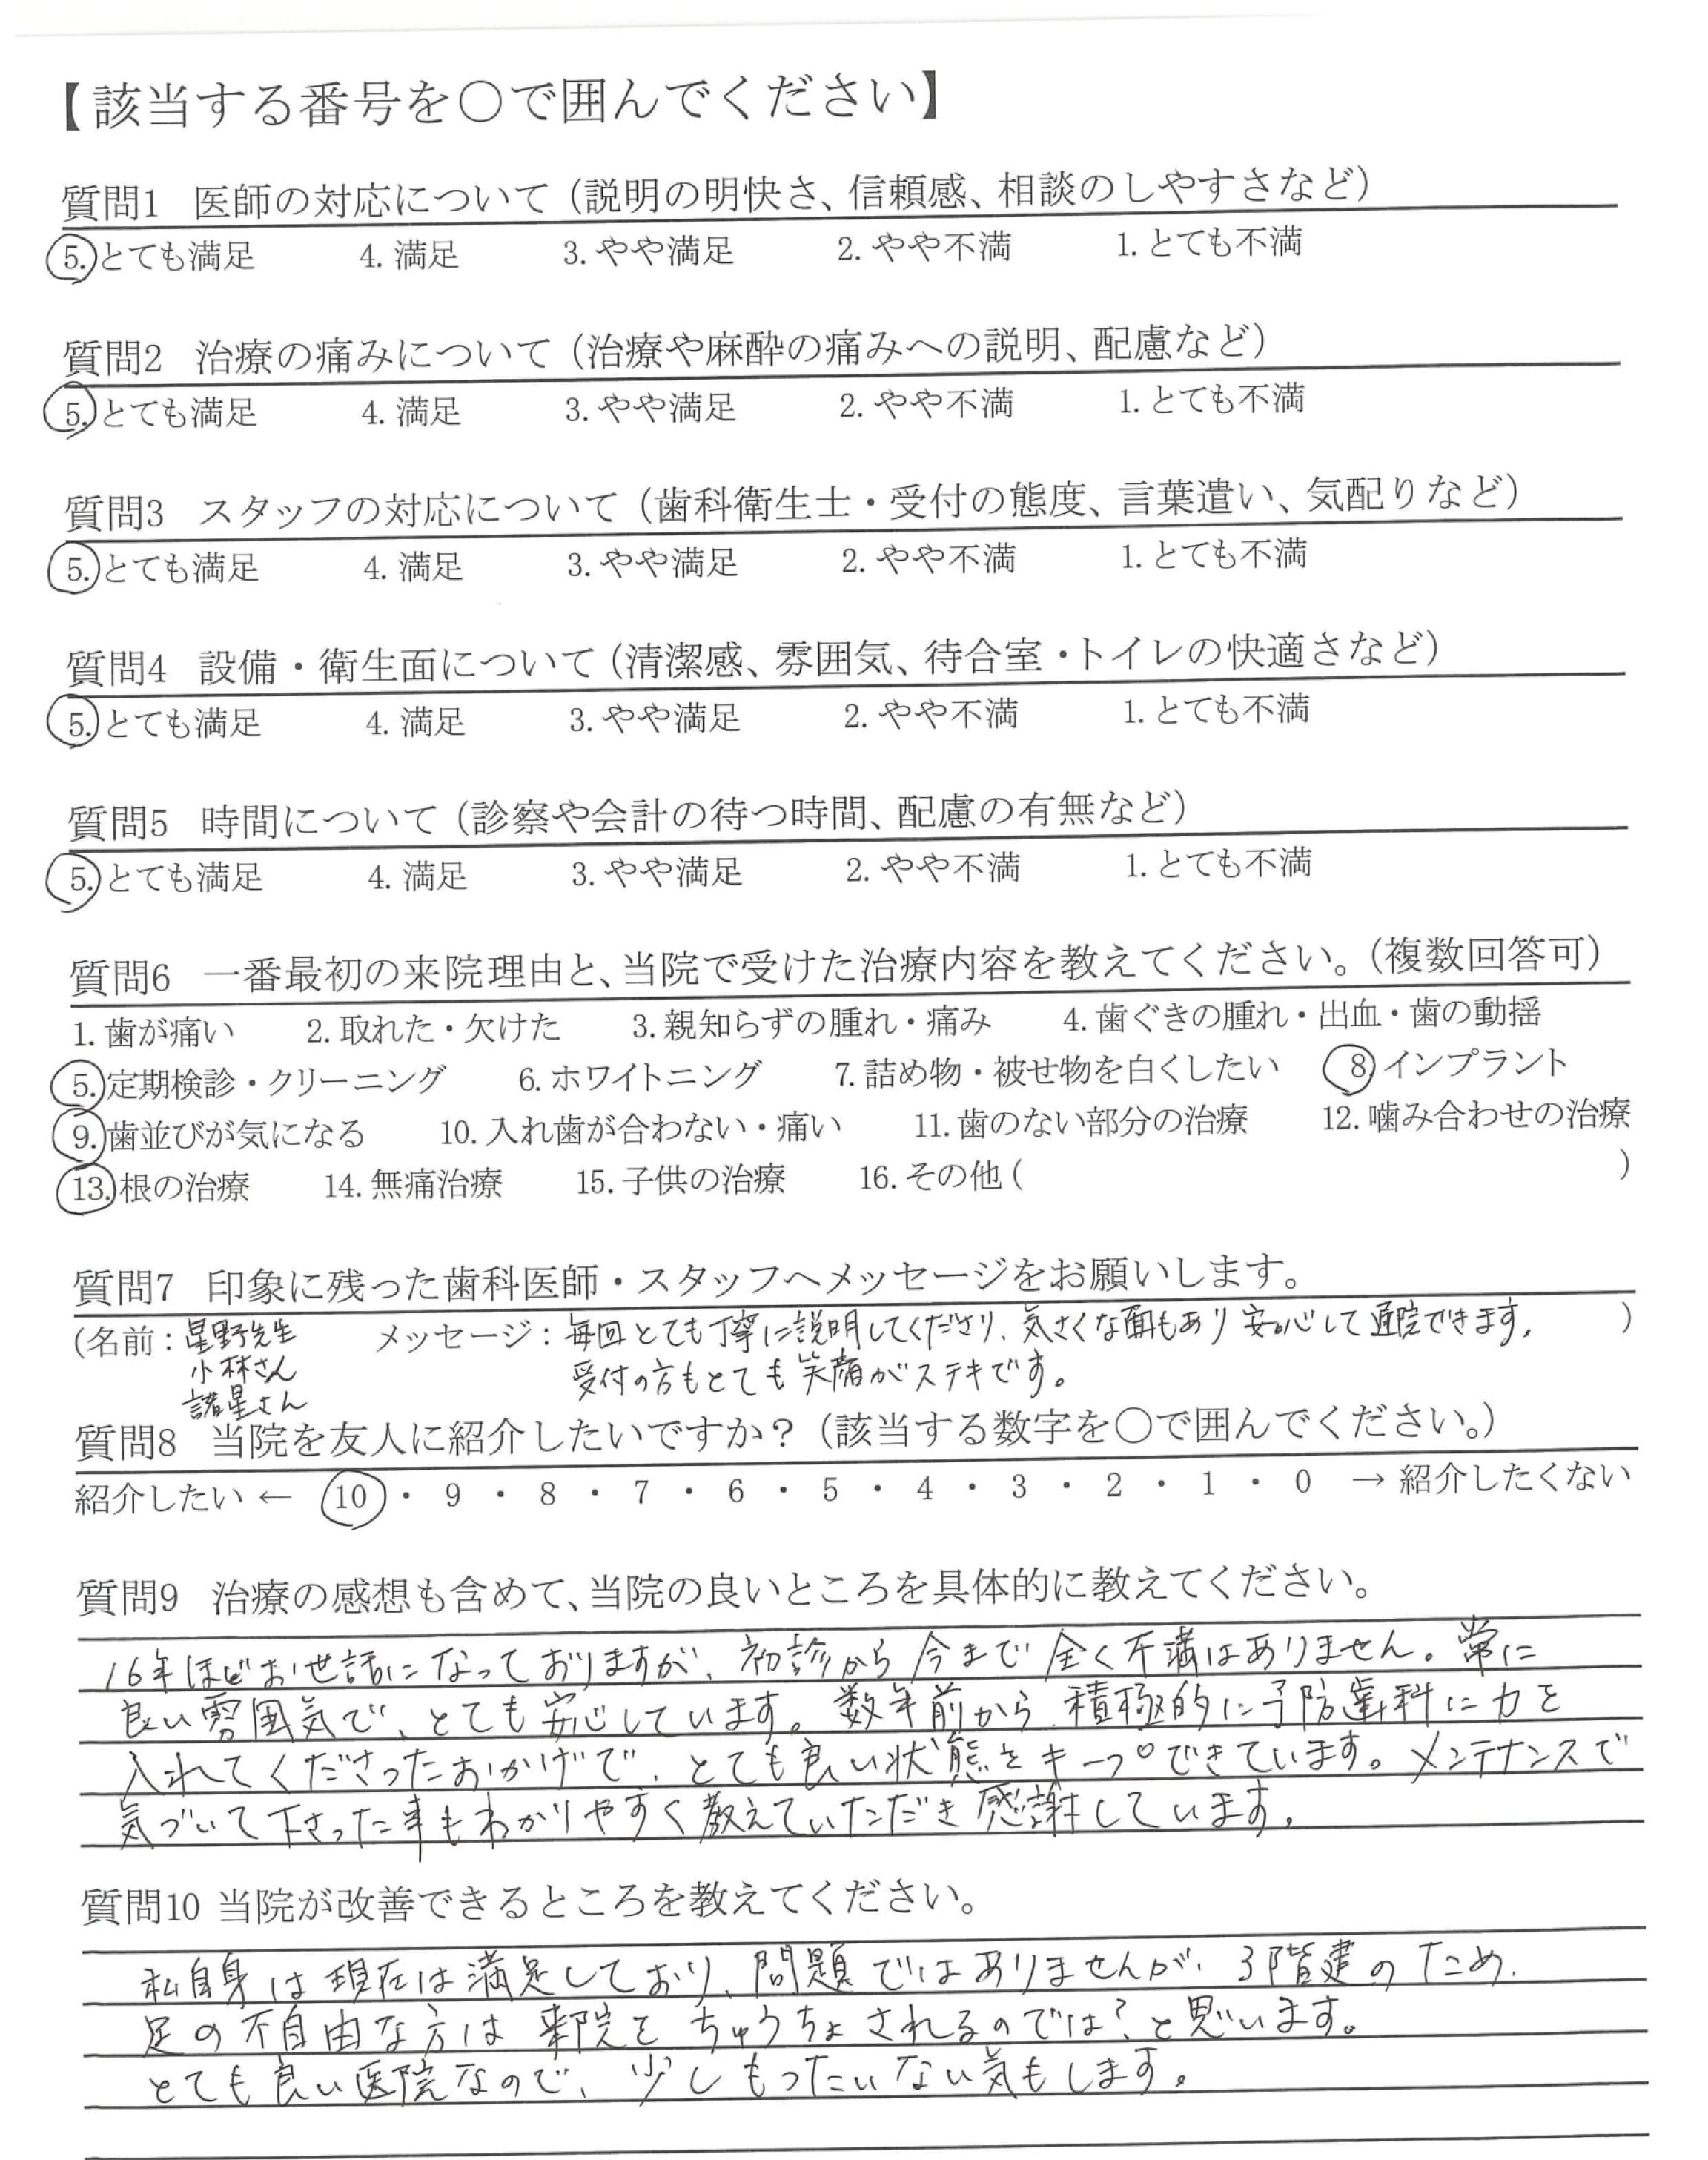 【該当する番号を〇で囲んでください】
質問1 医師の対応について（説明の明快さ、信頼感、相談のしやすさなど）
5.とても満足 4. 満足 3. やや満足 2. やや不満 1. とても不満
質問2 治療の痛みについて（治療や麻酔の痛みへの説明、配慮など）
5.とても満足 4. 満足 3. やや満足 2. やや不満 1. とても不満
質問3 スタッフの対応について（歯科衛生士・受付の態度、言葉遣い、気配りなど）
5.とても満足 4. 満足 3. やや満足 2. やや不満 1. とても不満
質問4 設備・衛生面について（清潔感、雰囲気、待合室・トイレの快適さなど）
5.とても満足 4. 満足 3. やや満足 2. やや不満 1. とても不満
質問5 時間について（診察や会計の待つ時間、配慮の有無など）
5.とても満足 4. 満足 3. やや満足 2. やや不満 1. とても不満
質問6 一番最初の来院理由と、当院で受けた治療内容を教えてください。（複数回答可）
1. 歯が痛い 2. 取れた・欠けた 3. 親知らずの腫れ・痛み 4. 歯ぐきの腫れ・出血・歯の動揺
5.定期検診・クリーニング 6. ホワイトニング 7. 詰め物・被せ物を白くしたい 8 インプラント
9.歯並びが気になる 10. 入れ歯が合わない・痛い 11. 歯のない部分の治療 12. 噛み合わせの治療
13.根の治療 14. 無痛治療 15. 子供の治療 16. その他（ ）
質問7 印象に残った歯科医師・スタッフへメッセージをお願いします。
（名前：星野先生 メッセージ：毎回とても丁寧に説明してくださり、気さくな面もあり安心して通院できます。 ）
小林さん 受付の方もとても笑顔がステキです。
諸星さん
質問8 当院を友人に紹介したいですか？（該当する数字を〇で囲んでください。）
紹介したい ← 10 ・ 9 ・ 8 ・ 7 ・ 6 ・ 5 ・ 4 ・ 3 ・ 2 ・ 1 ・ 0 → 紹介したくない
質問9 治療の感想も含めて、当院の良いところを具体的に教えてください。
16年ほどお世話になっておりますが、初診から今まで全く不満はありません。常に
良い雰囲気で、とても安心しています。数年前から、積極的に予防歯科に力を
入れてくださったおかげで、とても良い状態をキープできています。メンテナンスで
気づいて下さった事もわかりやすく教えていただき感謝しています。
質問10 当院が改善できるところを教えてください。
私自身は現在は満足しており、問題ではありませんが、3階建のため、
足の不自由な方は来院をちゅうちょされるのでは？と思います。
とても良い医院なので、少しもったいない気もします。